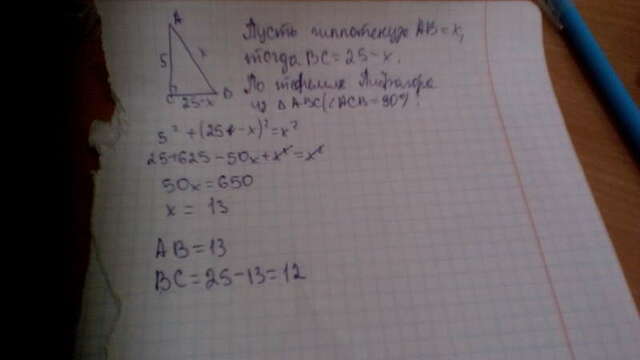 A
5
x
C
25-x
B
Пусть гиппотенуза AB=x,
тогда BC=25-x.
По теореме Пифагора
из ΔABC(∠ACB=90°):
5²+(25-x)²=x²
25+625-50x+x²=x²
50x=650
x=13
AB=13
BC=25-13=12